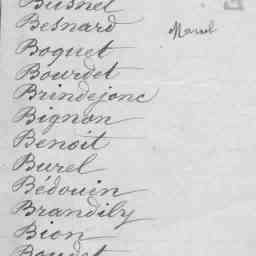 Busnel
Besnard
Boquet
Bourdet
Brindejonc
Bignon
Benoit
Burel
Bédouin
Brandily
Bion